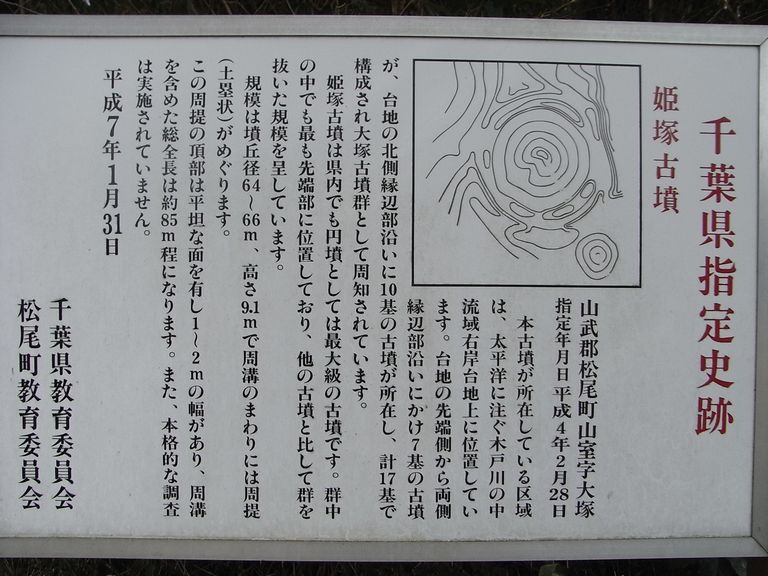 千葉県指定史跡
姫塚古墳
山武郡松尾町山室字大塚
指定年月日平成4年2月28日
本古墳が所在している区域
は、太平洋に注ぐ木戸川の中
流域右岸台地上に位置してい
ます。台地の先端側から両側
縁辺部沿いにかけ7基の古墳
が、台地の北側縁辺部沿いに10基の古墳が所在し、計17基で
構成され大塚古墳群として周知されています。
姫塚古墳は県内でも円墳としては最大級の古墳です。群中
の中でも最も先端部に位置しており、他の古墳と比して群を
抜いた規模を呈しています。
規模は墳丘径64～66m、高さ9.1mで周溝のまわりには周提
(土塁状)がめぐります。
この周提の頂部は平坦な面を有し1～2mの幅があり、周溝
を含めた総全長は約85m程になります。また、本格的な調査
は実施されていません。
平成7年1月31日
千葉県教育委員会
松尾町教育委員会